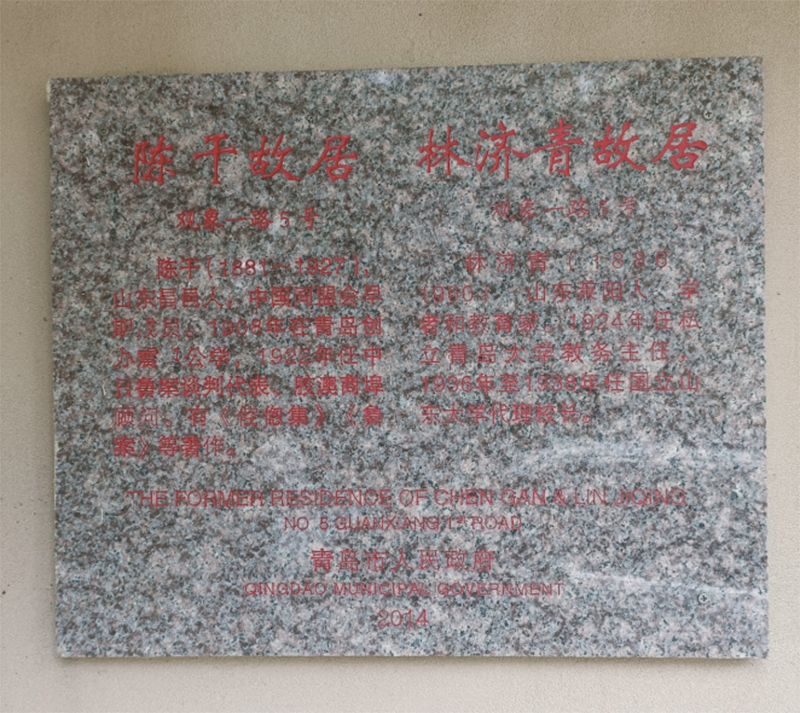 陈干故居
观象一路5号
陈干(1881-1927),
山东昌邑人,中国同盟会早
期成员。1908年在青岛创
办震旦公学,1922年任中
日鲁案谈判代表、胶澳商埠
顾问。有《 》《鲁
案》等著作。
林济青故居
观象一路5号
林济青(1886-
1960),山东莱阳人,学
者和教育家。1924年任私
立青岛大学教务主任,
1936年至1938年任国立山
东大学代理校长。
THE FORMER RESIDENCE OF CHEN GAN & LIN JIQING
NO. 5 GUANXIANG 1ST ROAD
青岛市人民政府
QINGDAO MUNICIPAL GOVERNMENT
2014